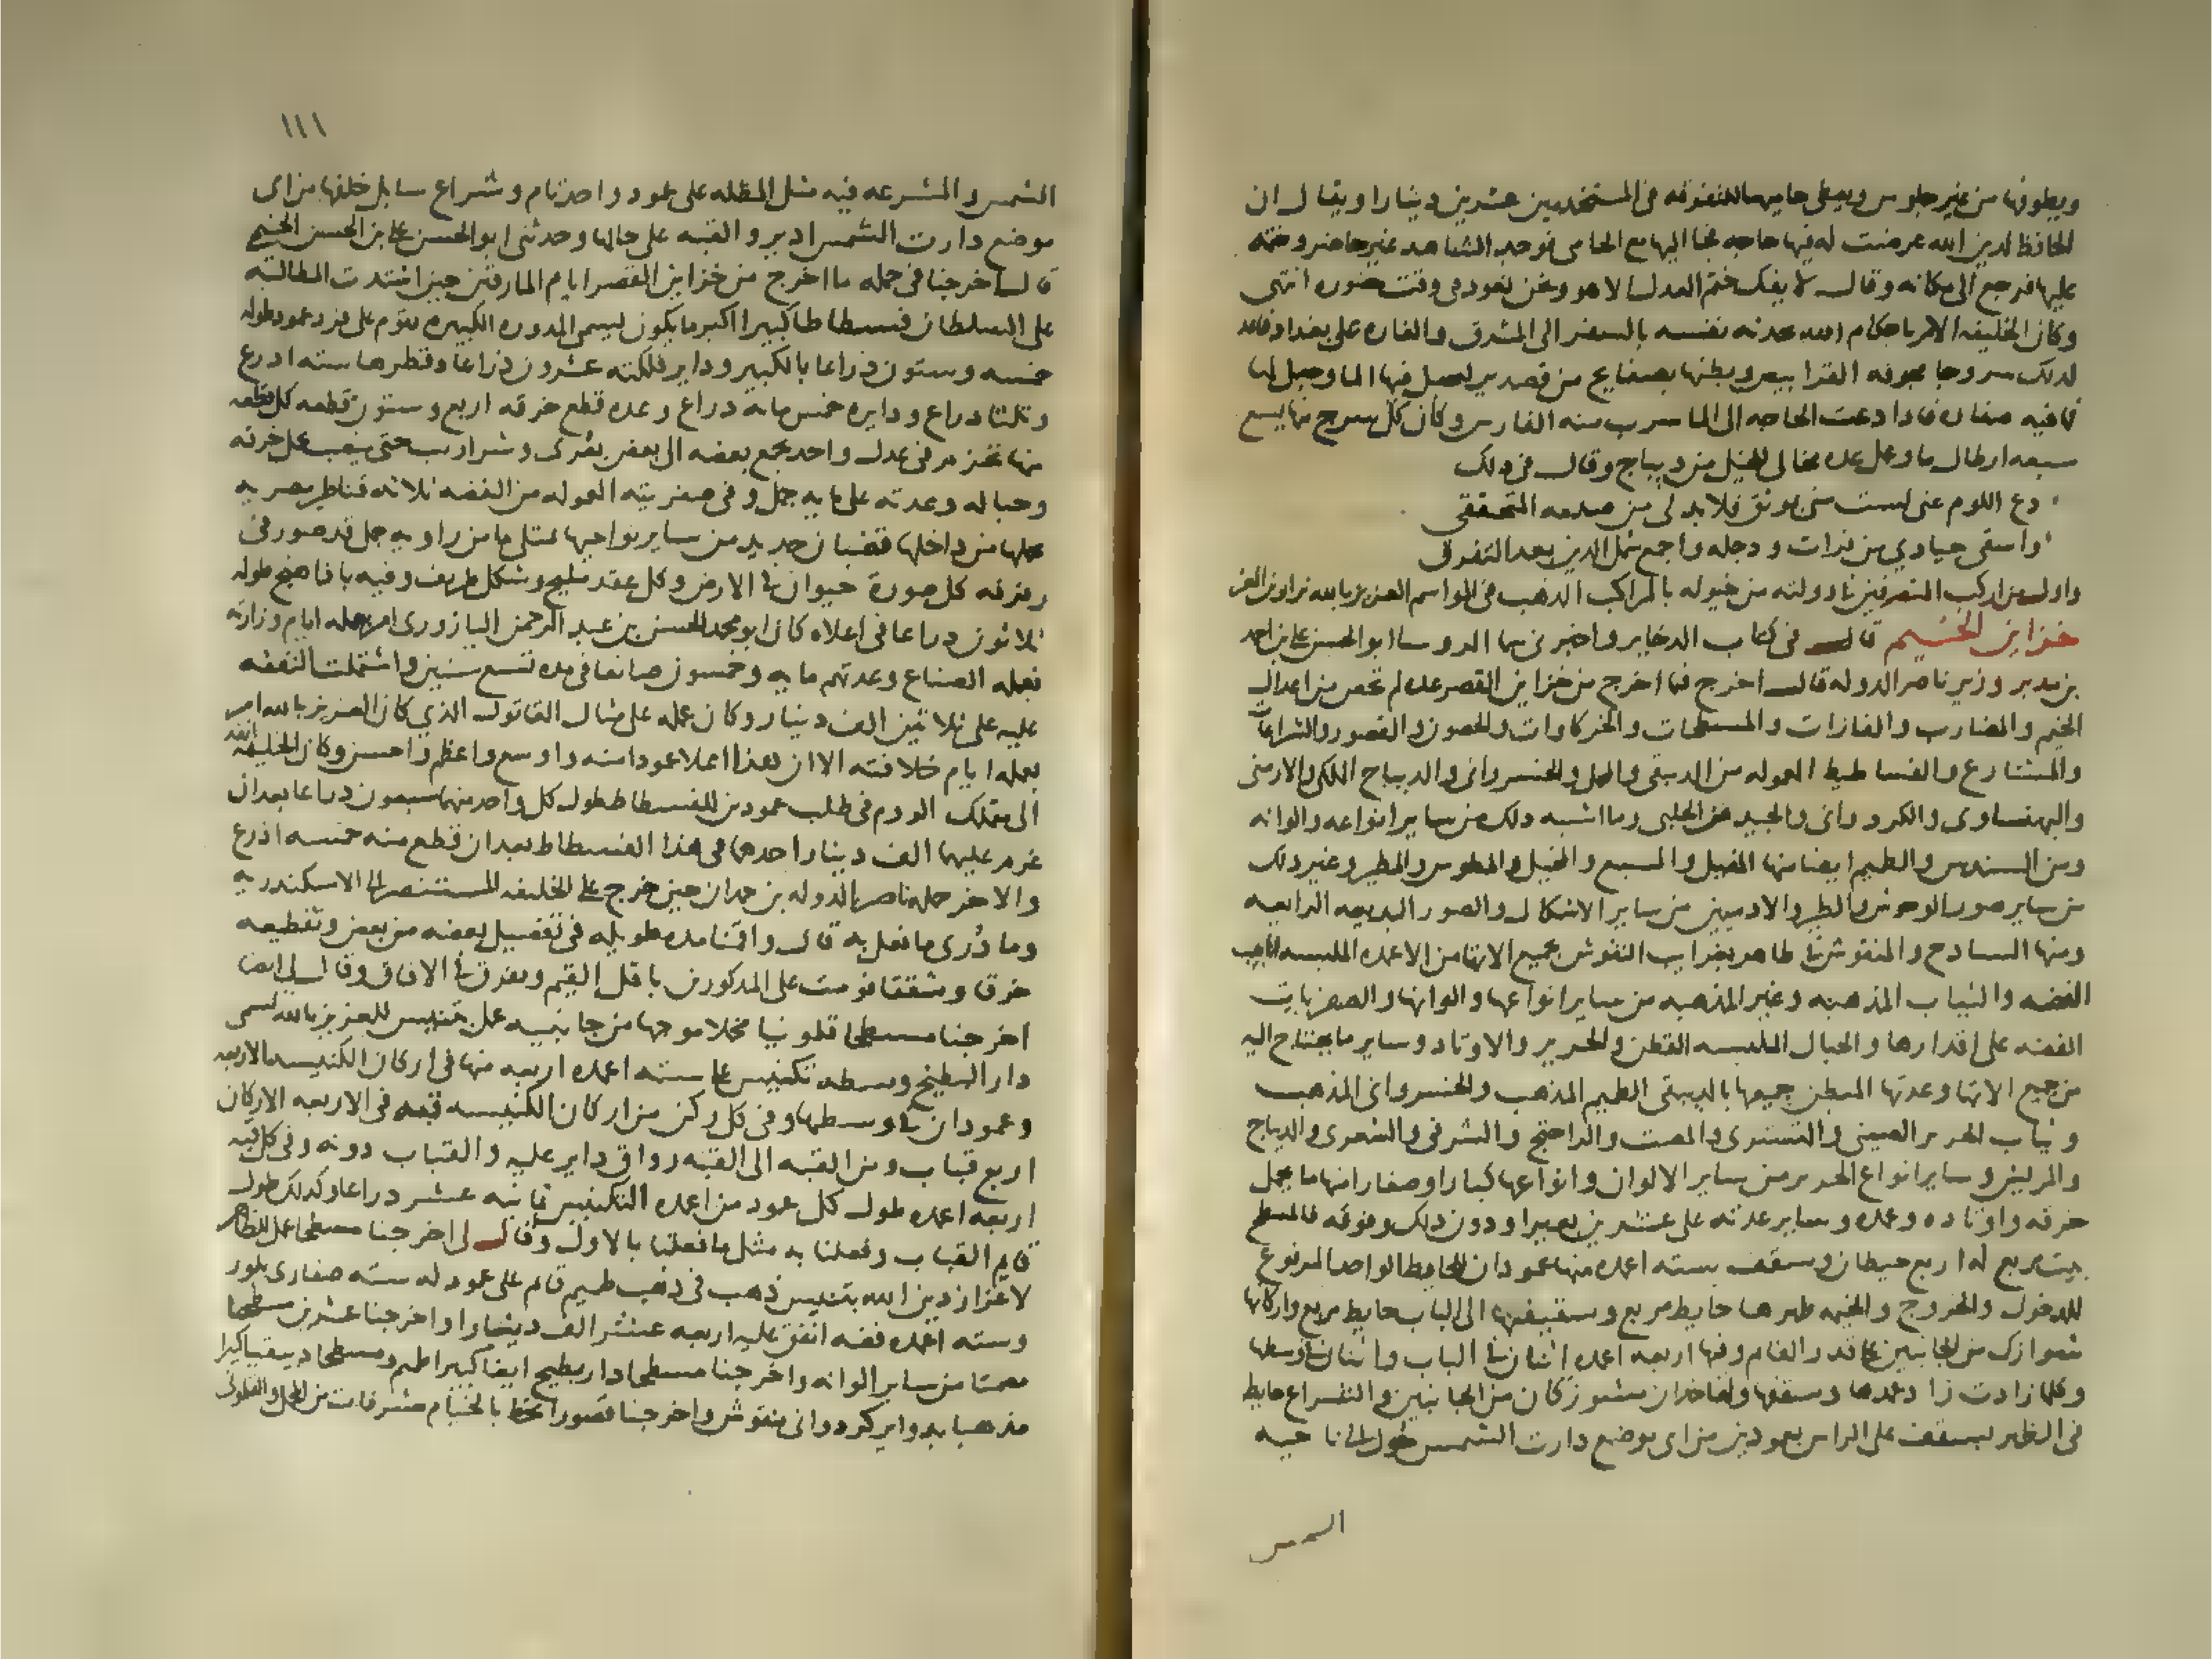 ويطوفها من غير جلوس ويعطى حاميها للتفرقه فى المستخدمين عشرين دينارا ويقال ان
الحافظ لدين الله عرضت له فيها حاجه فجا اليها مع الحامى فوجد الشاهد غير حاضر وختمه
عليها فرجع الى مكانه وقال لا يفك ختم العدل الا هو ونحن نعود فى وقت حضوره انتهى
وكان الخليفه الامر باحكام الله تحدثه نفسه بالسفر الى المشرق والغاره على بغداد فاعد
لذلك سروجا مجوفه القرابيص وبطنها بصفايح من قصدير ليحمل فيها الما وجعل لها
فما فيه صفاره فاذا دعت الحاجه الى الما شرب منه الفارس وكان كل سرج منها يسع
سبعه ارطال ما وعمل عده مخالى للخيل من ديباج وقال فى ذلك
دع اللوم عنى لست منى بموثق فلا بد لى من صدمه المتحقق
واسقى جيادى من فرات ودجله واجمع شمل الدين بعد التفرق
واول من اركب المتصرفين فى دولته من خيوله بالمراكب الذهب فى المواسم العزيز بالله نزار بن المعز
خزاين الخيم قال فى كتاب الذخاير واخبرنى سما الروسا ابو الحسن على بن احمد
بن مدبر وزير ناصر الدوله قال اخرج فيما اخرج من خزاين القصر عده لم تحص من اعدال
الخيم والمضارب والفازات والمسطحات والخركاوات والحصون والقصور والشراعات
والمشارع والفساطيط المعموله من الدبيقى والمخمل والخسروانى والديباج الملكى والارمنى
والبهنساوى والكردوانى والجيد من الحلبى وما اشبه ذلك من ساير انواعه والوانه
ومن السندس والطميم ايضا منها المفيل والمسبع والمخيل والمطوس والمطير وغير ذلك
من ساير صور الوحوش والطير والادميين من ساير الاشكال والصور البديعه الرايعه
ومنها السادج والمنقوش فى ظاهره بغرايب النقوش بجميع الاتها من الاعمده الملبسه انابيب
الفضه والثياب المذهبه وغير المذهبه من ساير انواعها والوانها والصفريات
الفضه على اقدارها والحبال الملبسه القطن والحرير والاوتاد وساير ما يحتاج اليه
من جميع الاتها وعدتها المبطن جميعها بالدبيقى الطميم المذهب والخسروانى المذهب
وثياب الحرير الصينى والتسترى والمصمت والراختج والشرفى والشعرى والديباج
والمريش وساير انواع الحرير من ساير الالوان وانواعها كبارا وصغارا منها ما يحمل
خرقه واوتاده وعمده وساير عدته على عشرين بعيرا ودون ذلك وفوقه فالمسطح
بيت مربع له اربع حيطان وسقف بسته اعمده منها عمودان للحايط الواحد المرفوع
للدخول والخروج والخيمه ظهرها حايط مربع وسقيفها الى الباب حايط مربع واركانها
شوازك من الجانبين على قدر القايم وفيها اربعه اعمده اثنان فى الباب واثنان فى وسطها
وكلما زادت زاد عمدها وسقفها ولها خدان مشوزكان من الجانبين والشراع حايط
فى الظهر بسقف على الراس بعمودين من اى موضع دارت الشمس حول الى ناحيه
الشمس
١١١
الشمس والمشرعه فيه مثل المظله على عمود واحد تام وشراع سابل خلفها من اى
موضع دارت الشمس ادير والقبه على حالها وحدثنى ابو الحسن على بن الحسن الخيمى
قال اخرجنا فى جمله ما اخرج من خزاين القصر ايام المارقين حين اشتدت المطالبه
على السلطان فسطاطا كبيرا اكبر ما يكون يسمى المدوره الكبيره يقوم على فرد عمود طوله
خمسه وستون ذراعا بالكبير وداير فلكته عشرون ذراعا وقطرها سته اذرع
وثلثا ذراع ودايره خمس مايه ذراع وعده قطع خرقه اربع وستون قطعه كل قطعه
منها تحزم فى عدل واحد يجمع بعضه الى بعض بعرى وشراريب حتى ينصب يحمل خرقه
وحباله وعدته على مايه جمل وفى صفريته المعموله من الفضه ثلاثه قناطير مصريه
يحملها من داخلها قضبان حديد من ساير نواحيها تمتلى ما من راويه جمل قد صور فى
رفرفه كل صورة حيوان فى الارض وكل عقد مليح وشكل ظريف وفيه باذاهنج طوله
ثلاثون ذراعا فى اعلاه كان ابو محمد الحسن بن عبد الرحمن اليازورى امر بعمله ايام وزارته
فعمله الصناع وعدتهم مايه وخمسون صانعا فى مده تسع سنين واشتملت النفقه
عليه على ثلاثين الف دينار وكان عمله على مثال القاتول الذي كان العزيز بالله امر
بعمله ايام خلافته الا ان هذا اعلا عمودا منه واوسع واعظم واحسن وكان الخليفه انفذ
الى متملك الروم فى طلب عمودين للفسطاط طول كل واحد منهما سبعون ذراعا بعد ان
غرم عليهما الف دينار احدهما فى هذا الفسطاط بعد ان قطع منه خمسه اذرع
والاخر حمله ناصر الدوله بن حمدان حين خرج على الخليفه المستنصر الى الاسكندريه
وما ذرى ما فعل به قال واقمنا مده طويله فى تفصيل بعضه من بعض وتقطيعه
خرقا وشققا قومت على المذكورين باقل القيم وتفرق فى الافاق وقال لى ايضا
اخرجنا مسطحا قلمونيا مخملا موجها من جانبيه عمل بتنيس للعزيز بالله تسمى
دار البطيخ وسطه تكنيس على سته اعمده اربعه منها فى اركان الكنيسه الاربعه
وعمودان فى وسطها وفى كل ركن من اركان الكنيسه قبه فى الاربعه الاركان
اربع قباب ومن القبه الى القبه رواق داير عليه والقباب دونه وفى كل قبه
اربعه اعمده طول كل عمود من اعمده التكنيس ثمانيه عشر ذراعا وكذلك طول
قايم القباب وفعلنا به مثل ما فعلنا بالاول وقال لى اخرجنا مسطحا عمل للظاهر
لاعزاز دين الله بتنيس ذهب فى ذهب طميم قايم على عمود له سته صفارى بلور
وسته اعمده فضه انفق عليه اربعه عشر الف دينار واخرجنا عشرين مسطحا
مصمتا من ساير الوانه واخرجنا مسطحا دار بطيخ ايضا كبيرا طميم ومسطحا دبيقيا كبيرا
مذهبا بدواير كردوانى منقوش واخرجنا قصورا تحط بالخيام مشرفات من المخمل والقلمونى